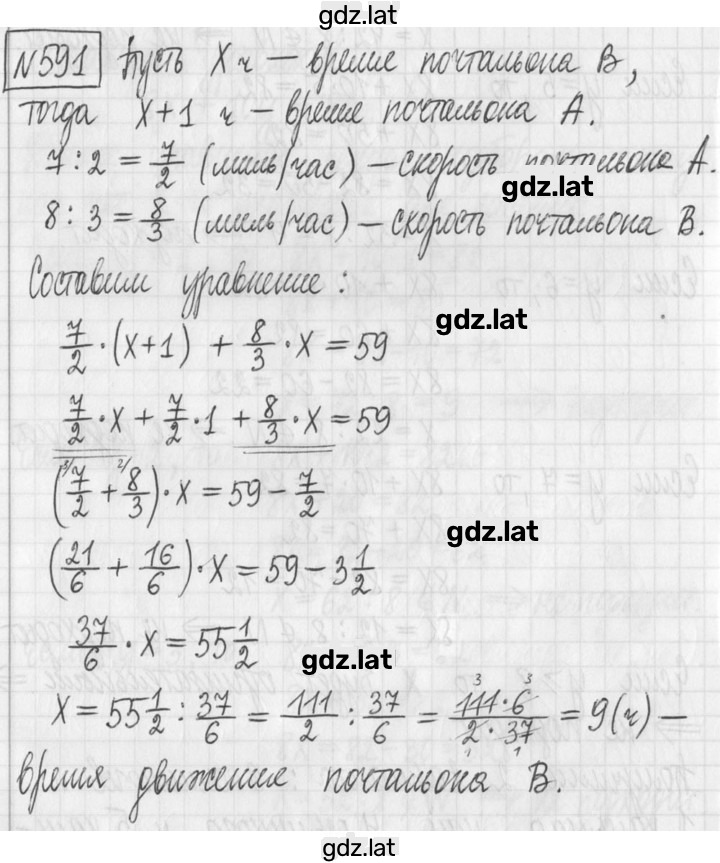 gdz.lat
№591 Пусть X ч — время почтальона B,
тогда X+1 ч — время почтальона A.
7 : 2 = 7/2 (миль/час) — скорость почтальона A.
gdz.lat
8 : 3 = 8/3 (миль/час) — скорость почтальона B.
Составим уравнение:
gdz.lat
7/2 · (X+1) + 8/3 · X = 59
7/2 · X + 7/2 · 1 + 8/3 · X = 59
(3/ 7/2 + 2/ 8/3) · X = 59 − 7/2
gdz.lat
(21/6 + 16/6) · X = 59 − 3 1/2
37/6 · X = 55 1/2
gdz.lat
X = 55 1/2 : 37/6 = 111/2 : 37/6 = 111 · 6 / 2 · 37 = 9 (ч) —
время движение почтальона B.
gdz.lat